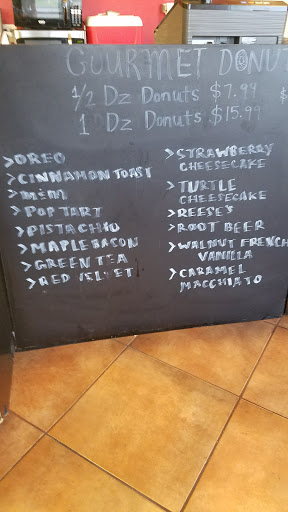 GOURMET DONU
1/2 Dz Donuts $7.99 $
1 Dz Donuts $15.99
>OREO
>CINNAMON TOAST
>M&M
>POP TART
>PISTACHIO
>MAPLE BACON
>GREEN TEA
>RED VELVET
>STRAWBERRY
CHEESECAKE
>TURTLE
CHEESECAKE
>REESE'S
>ROOT BEER
>WALNUT FRENCH
VANILLA
>CARAMEL
MACCHIATO